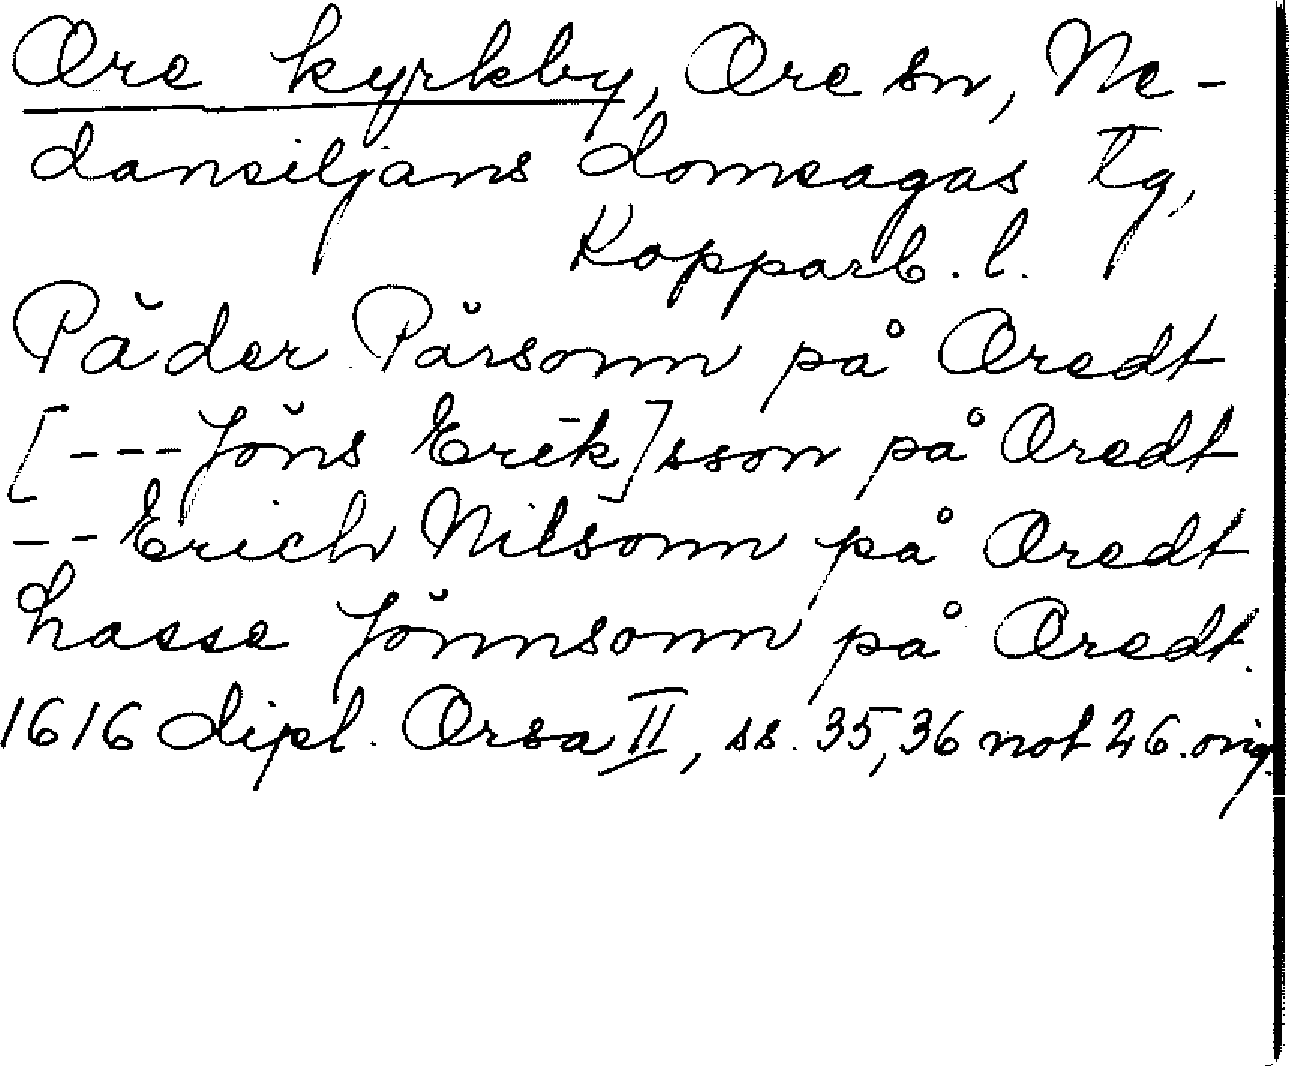 Ore kyrkby, Ore sn, Ne-
dansiljans domsagas tg,
Kopparb. l.
Păder Părsonn på Oredt
[---Jŏns Erik]sson på Oredt
-- Erich Nilsonn på Oredt
Lasse Jŏnnsonn på Oredt.
1616 dipl. Orsa II, ss. 35, 36 not 26. orig.